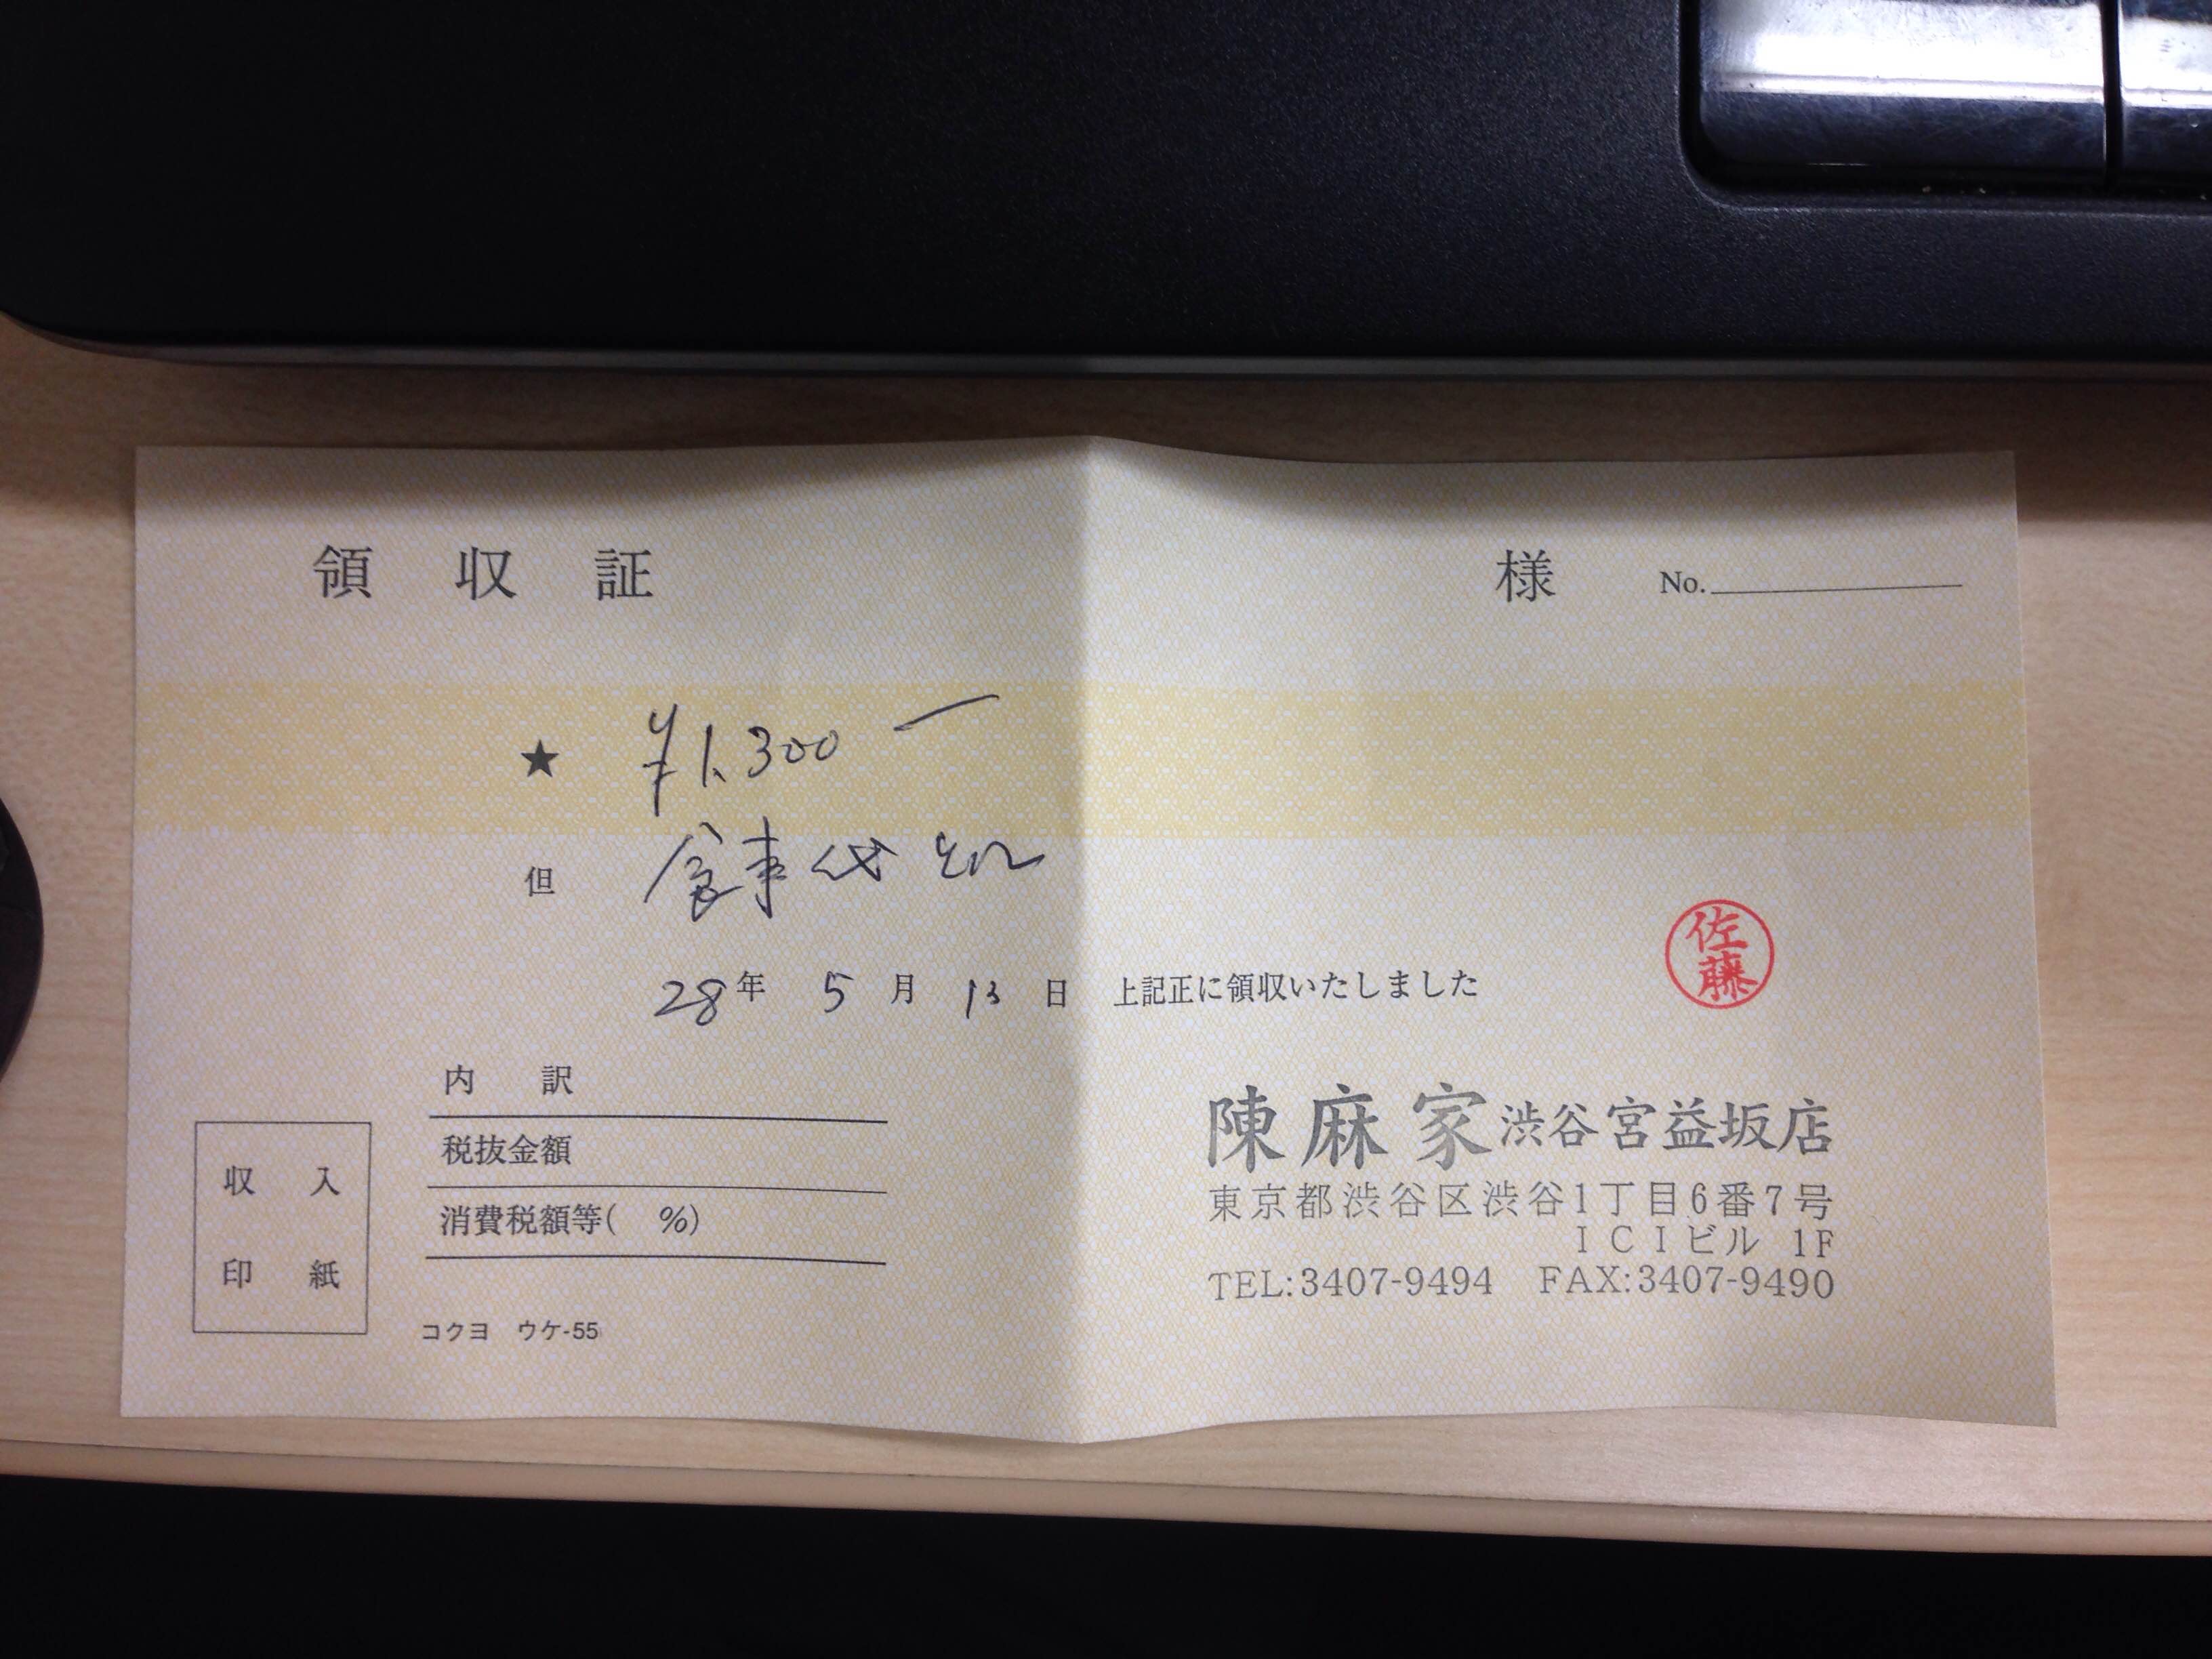 領収証 様 No.
★ ¥1,300 ー
但 食事代として
28年 5月 13日 上記正に領収いたしました
佐藤
内訳
税抜金額
消費税額等( %)
収入
印紙
コクヨ ウケ-55
陳麻家渋谷宮益坂店
東京都渋谷区渋谷1丁目6番7号
ICIビル 1F
TEL:3407-9494 FAX:3407-9490